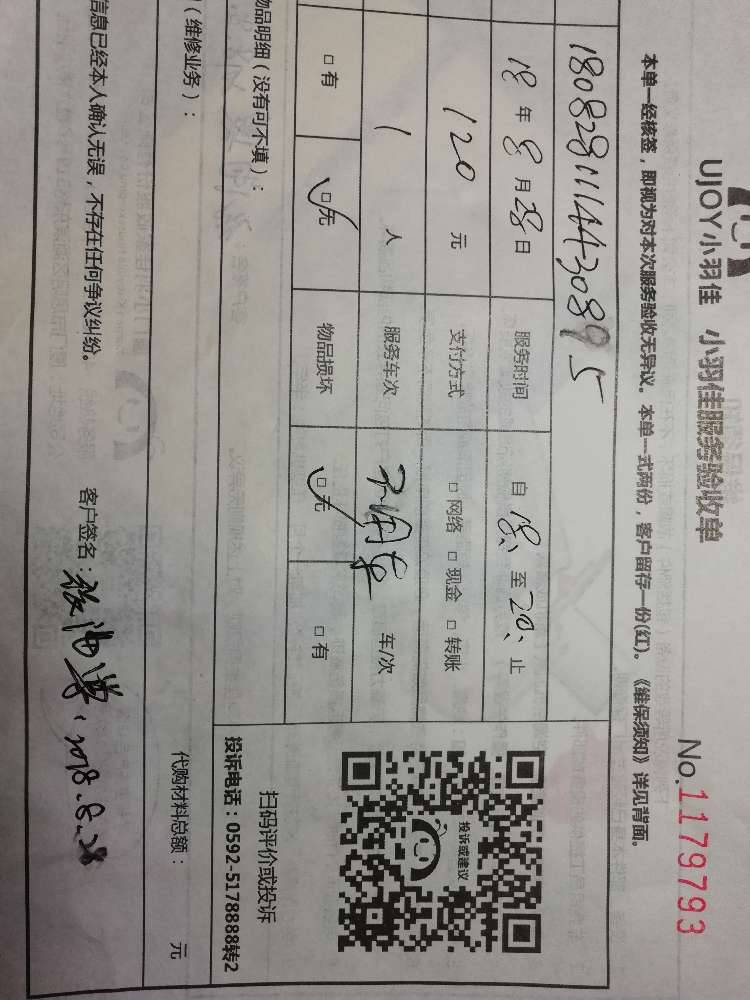 UJOY小羽佳 小羽佳服务验收单 No.1179793
本单一经核签，即视为对本次服务验收无异议。本单一式两份，客户留存一份(红)。《维保须知》详见背面。
18 年 8 月 28 日 服务时间 自 18: 至 20: 止
120 元 支付方式 □ 网络 □ 现金 □ 转账
1 人 服务车次 不用车 车/次
□ 有 □ 无 物品损坏 □ 无 □ 有
投诉或建议
扫码评价或投诉
投诉电话：0592-5178888转2
物品明细（没有可不填）：
（维修业务）： 代购材料总额： 元
信息已经本人确认无误，不存在任何争议纠纷。 客户签名： 2018.8.28